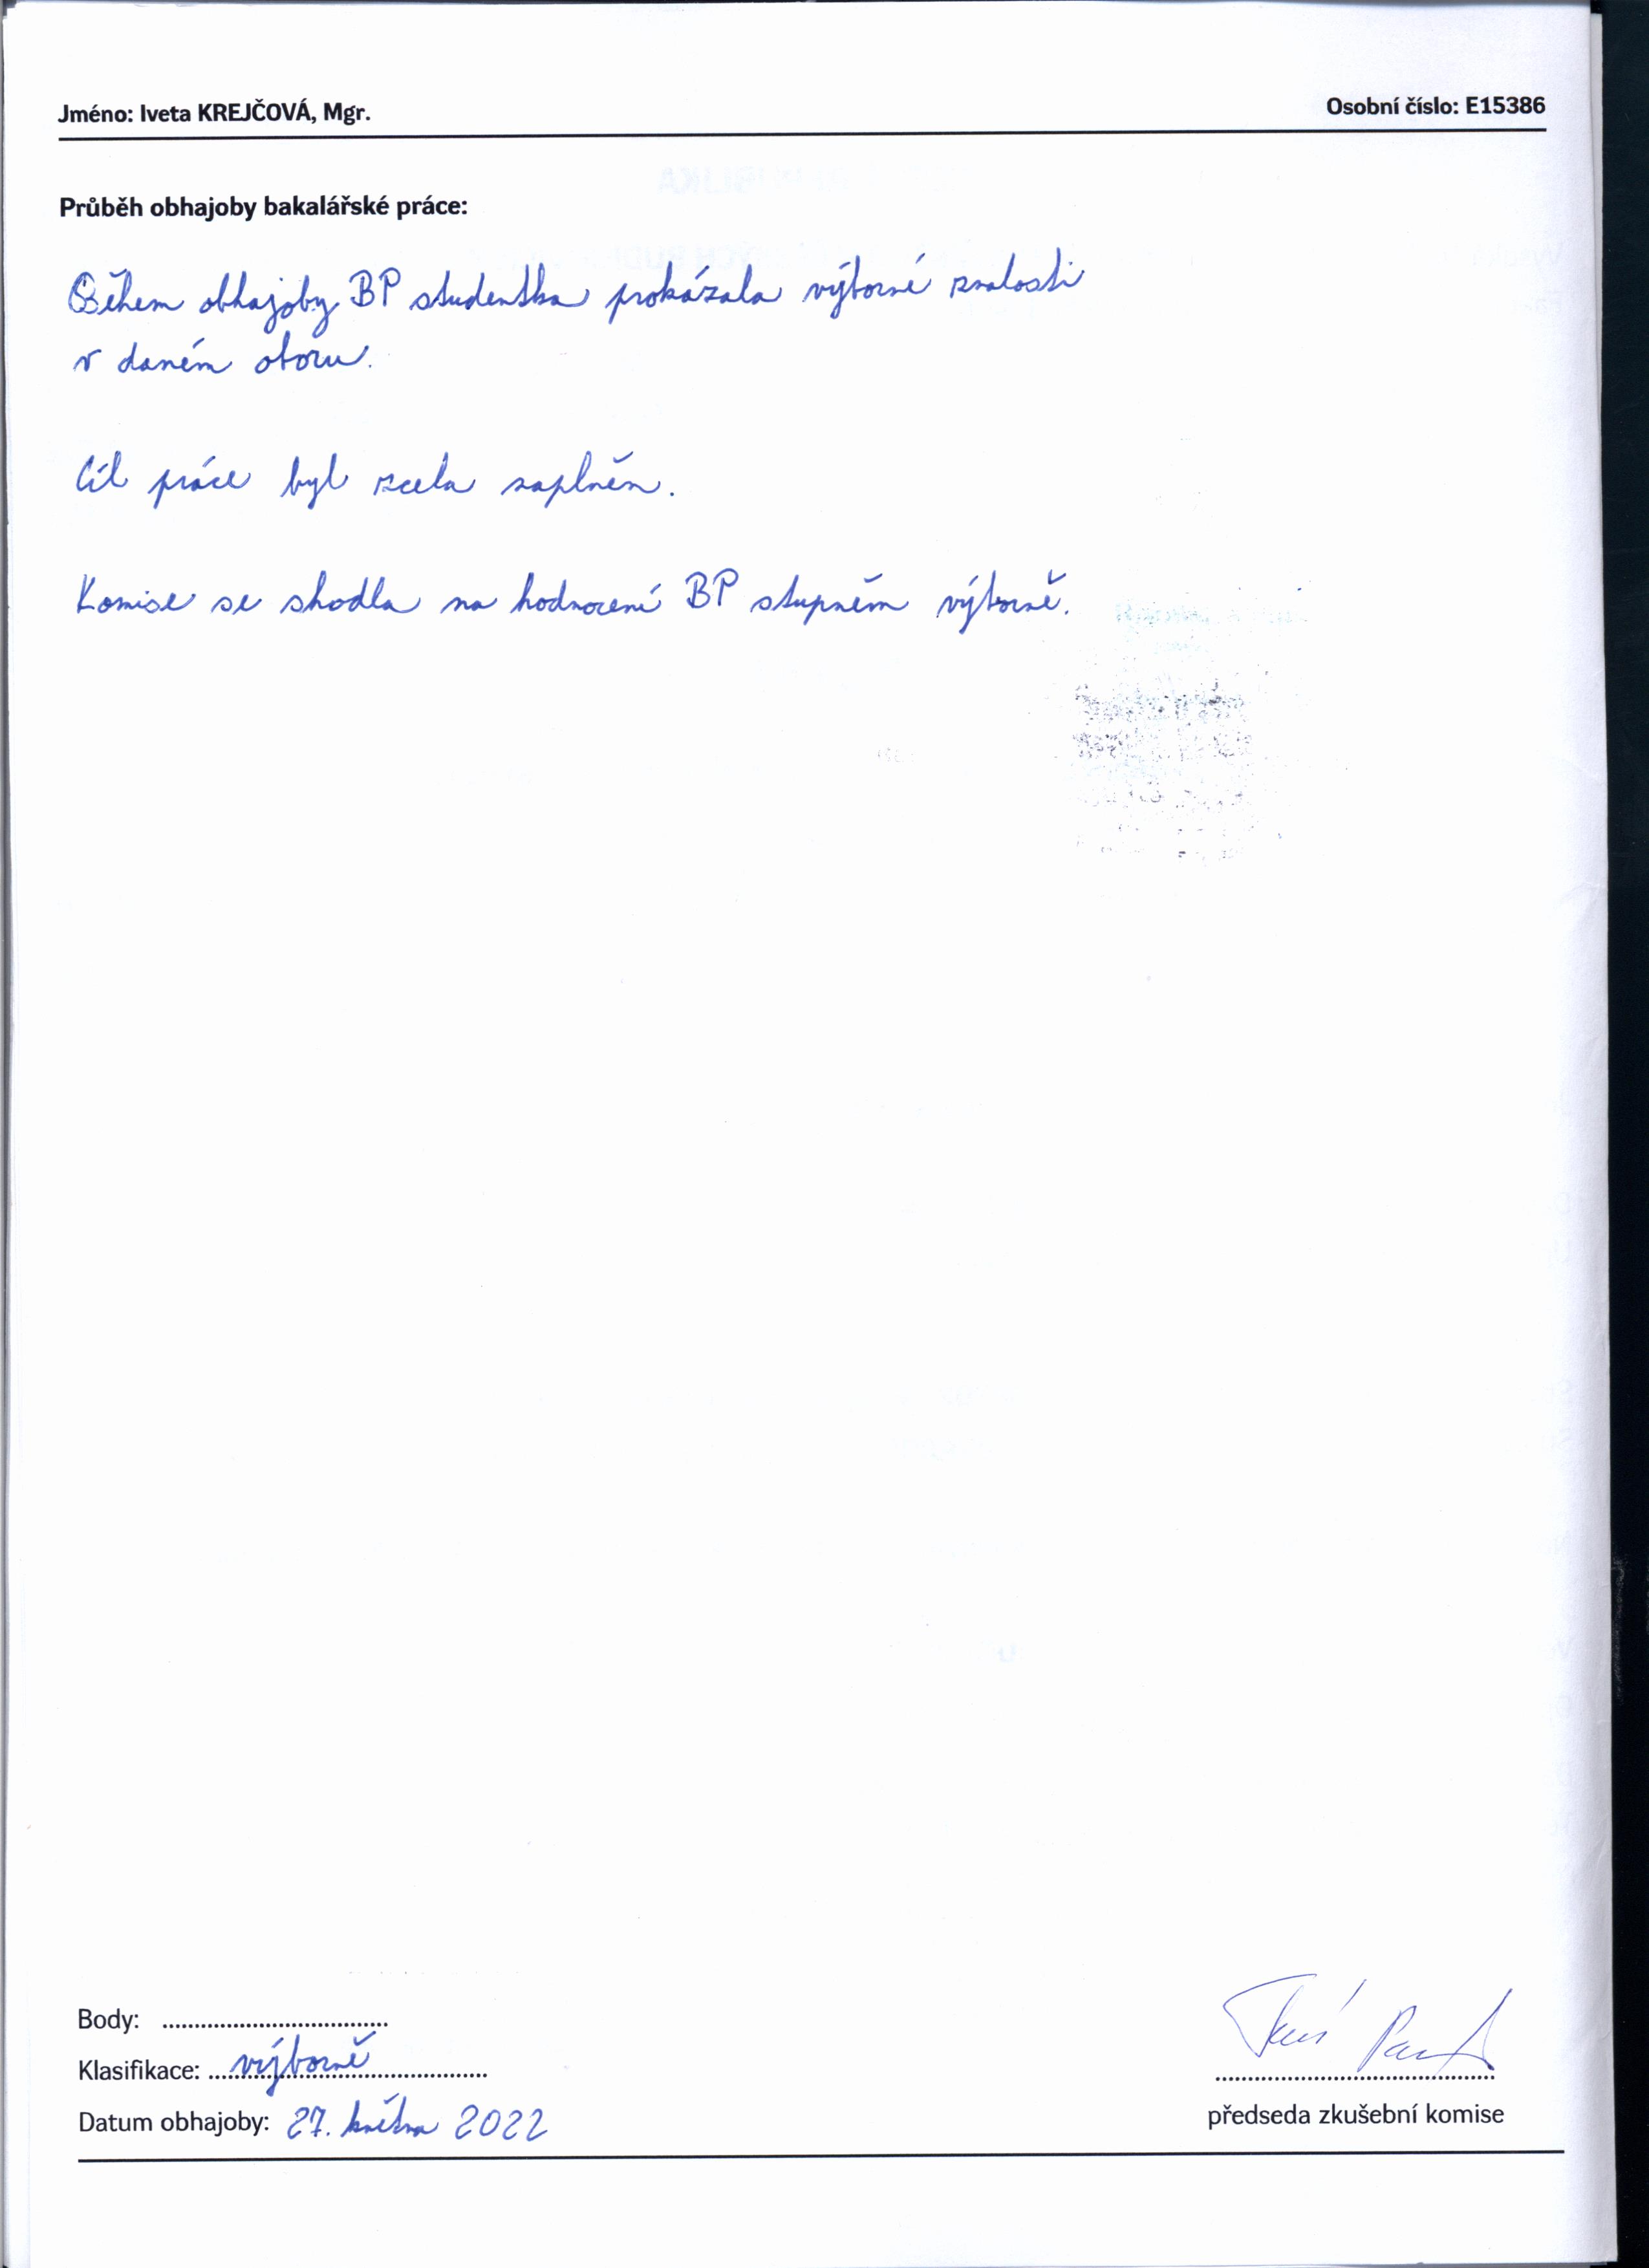 Jméno: Iveta KREJČOVÁ, Mgr. Osobní číslo: E15386
Průběh obhajoby bakalářské práce:
Během obhajoby BP studentka prokázala výborné znalosti
v daném oboru.
Cíl práce byl zcela naplněn.
Komise se shodla na hodnocení BP stupněm výborně.
Body: ....................................
Klasifikace: výborně
Datum obhajoby: 27. května 2022
předseda zkušební komise